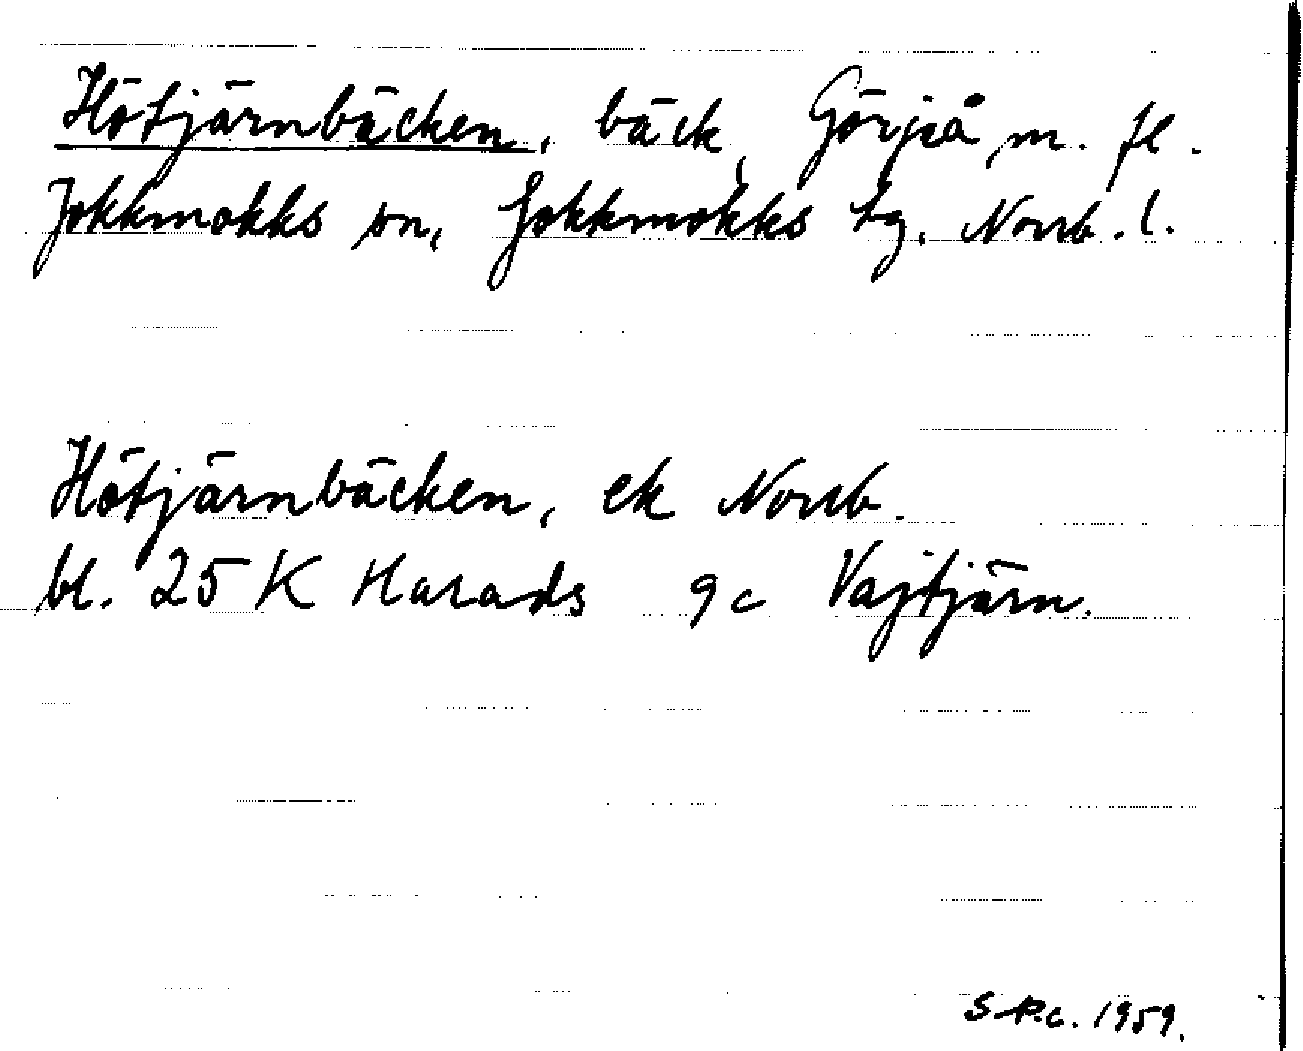 Hötjärnbäcken, bäck, Görjeå m. fl.
Jokkmokks sn, Jokkmokks tg. Norrb. l.
Hötjärnbäcken, ek Norrb.
bl. 25 K Harads 9 c Vajtjärn.
S.R.c. 1959.